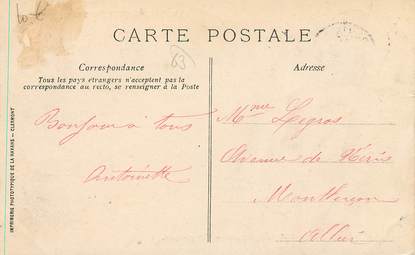 10 €
CARTE POSTALE
63
Correspondance
Tous les pays étrangers n'acceptent pas la
correspondance au recto, se renseigner à la Poste
Adresse
Bonjour à tous
Antoinette
Mme Legros
Avenue de
Montluçon
Allier
IMPRIMERIE PHOTOTYPIQUE DE LA HARAINE - CLERMONT